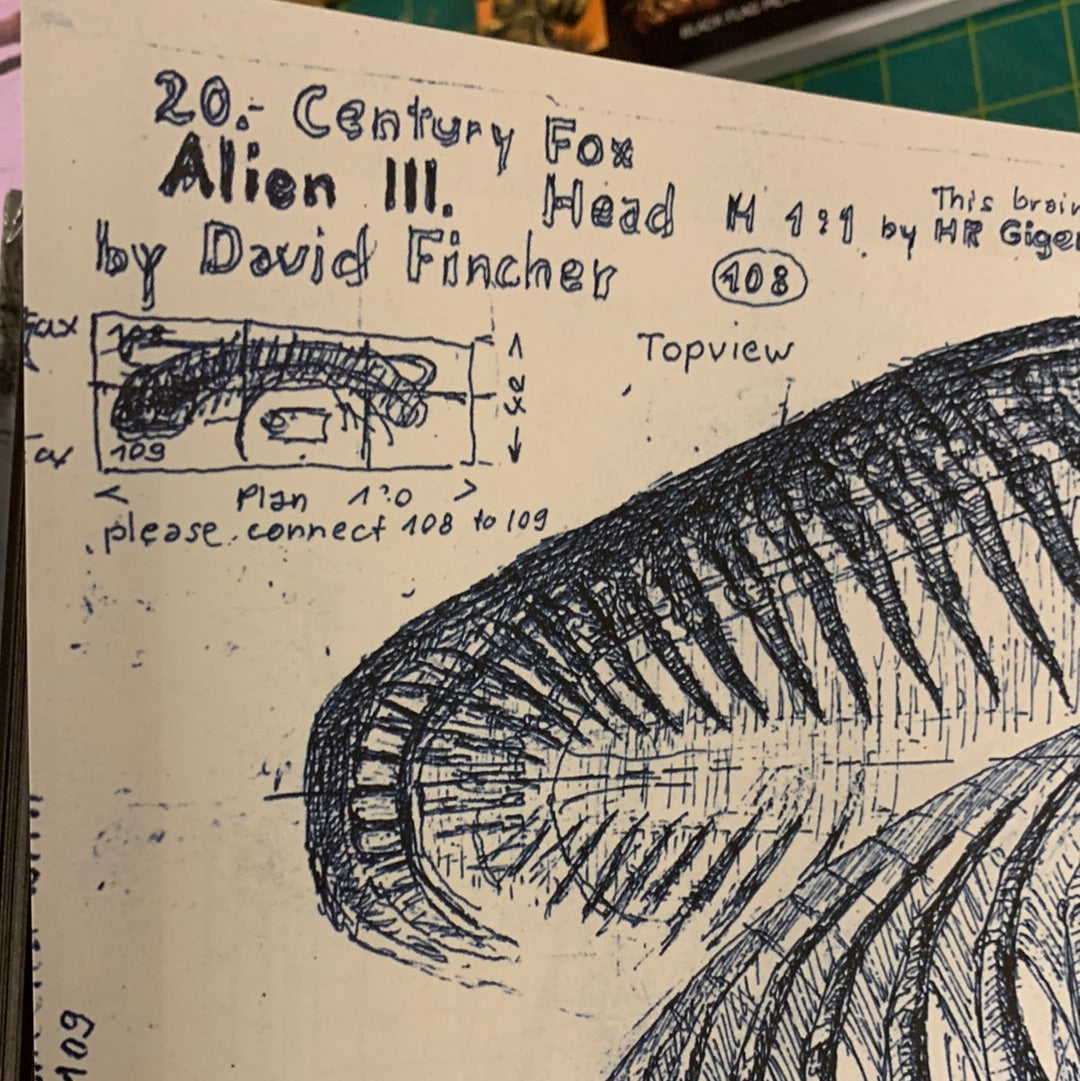 20.- Century Fox
Alien III. Head M 1:1 by HR Giger
This brain
by David Fincher
108
Fax 108
109
42
Topview
Plan 1:0
please connect 108 to 109
109